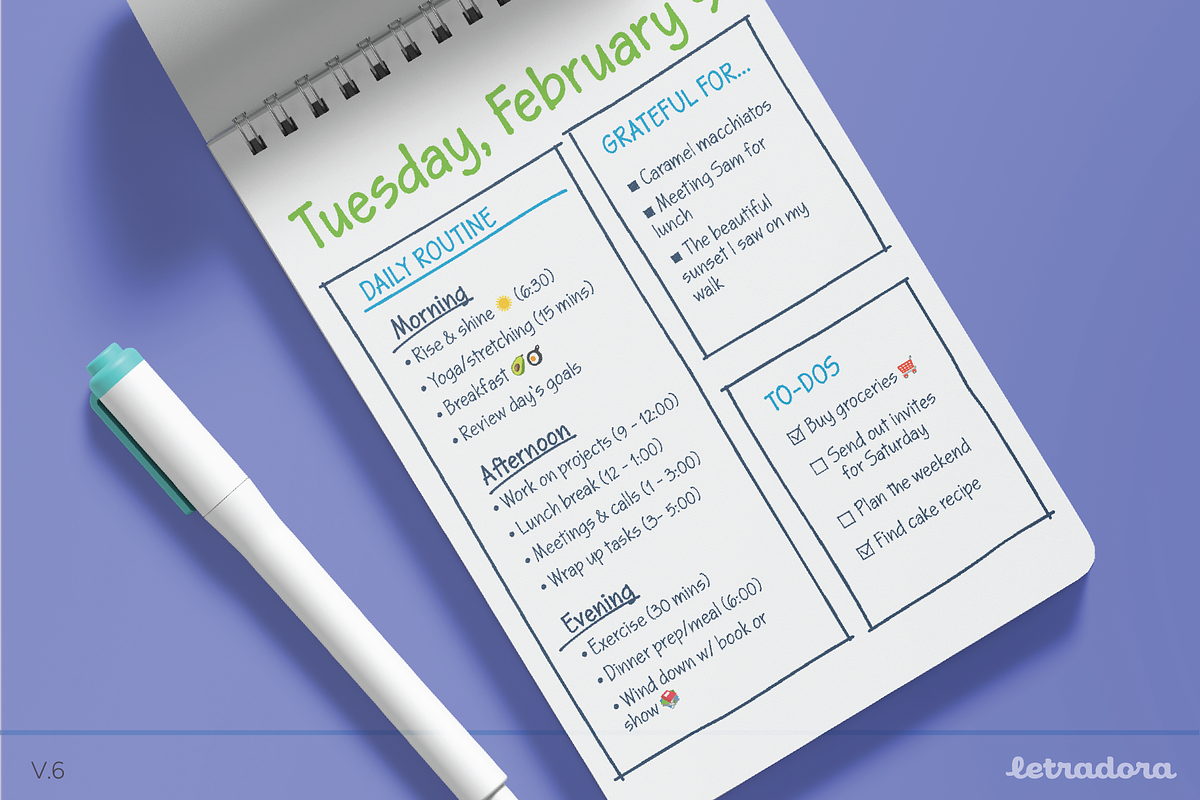 Tuesday, February
DAILY ROUTINE
Morning
• Rise & shine ☀️ (6:30)
• Yoga/stretching (15 mins)
• Breakfast 🥑🍳
• Review day's goals
Afternoon
• Work on projects (9 - 12:00)
• Lunch break (12 - 1:00)
• Meetings & calls (1 - 3:00)
• Wrap up tasks (3- 5:00)
Evening
• Exercise (30 mins)
• Dinner prep/meal (6:00)
• Wind down w/ book or
show 📚
GRATEFUL FOR...
■ Caramel macchiatos
■ Meeting Sam for
lunch
■ The beautiful
sunset I saw on my
walk
TO-DOS
☑ Buy groceries 🛒
☐ Send out invites
for Saturday
☐ Plan the weekend
☑ Find cake recipe
V.6
letradora